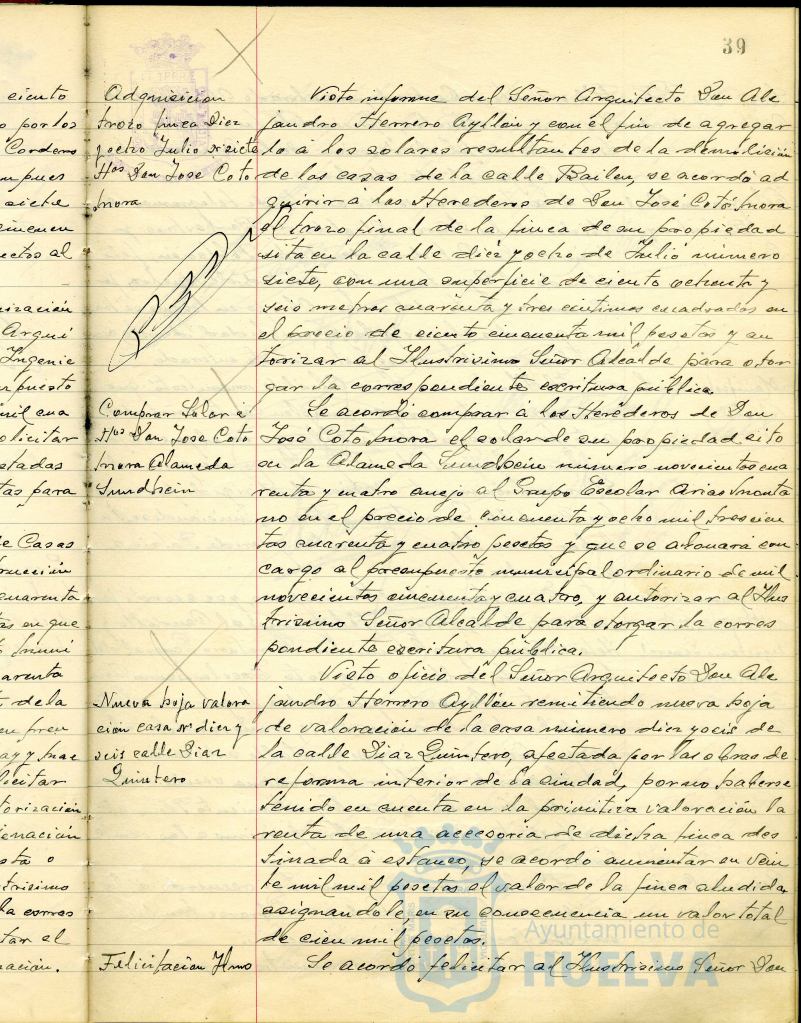 39
eciento
o por los
Cordero
siete
ectos al
Arqui
Ingenie
puesto
mil cua
olicitar
tas para
e Casas
cuarenta
as en que
arenta
de la
licitar
torización
enación
trisimo
la corres
tar el
nación.
Adquisicion
trozo finca Diez
y ocho Julio nº siete
Hºs Don Jose Coto
Mora
Visto informe del Señor Arquitecto Don Ale
jandro Herrero Ayllón y con el fin de agregar
lo á los solares resultantes de la demolición
de las casas de la calle Bailen, se acordó ad
quirir á los Herederos de Don José Coto Mora
el trozo final de la finca de su propiedad
sita en la calle diez y ocho de Julio número
siete, con una superficie de ciento ochenta y
seis metros cuarenta y tres centimos cuadrados en
el precio de ciento cincuenta mil pesetas y au
torizar al Ilustrisimo Señor Alcalde para otor
gar la correspondiente escritura pública.
Comprar Solar á
Hºs Don Jose Coto
Mora Alameda
Sundhein
Se acordó comprar á los Herederos de Don
José Coto Mora el solar de su propiedad sito
en la Alameda Sundhein número novecientos cua
renta y cuatro anejo al Grupo Escolar Arias Monta
no en el precio de cincuenta y ocho mil trescien
tas cuarenta y cuatro pesetas y que se abonará con
cargo al presupuesto municipal ordinario de mil
novecientos cincuenta y cuatro, y autorizar al Ilus
trisimo Señor Alcalde para otorgar la corres
pondiente escritura pública.
Nueva hoja valora
ción casa nº diez y
seis calle Diaz
Quintero
Visto oficio del Señor Arquitecto Don Ale
jandro Herrero Ayllón remitiendo nueva hoja
de valoración de la casa número diez y seis de
la calle Diaz Quintero, afectada por las obras de
reforma interior de la ciudad, por no haberse
tenido en cuenta en la primitiva valoración la
renta de una accesoria de dicha finca des
tinada á estanco, se acordó aumentar en vein
te mil mil pesetas el valor de la finca aludida
asignandole, en su consecuencia un valor total
de cien mil pesetas.
Felicitacion Ilmo
Se acordó felicitar al Ilustrisimo Señor Don
Ayuntamiento de
HUELVA